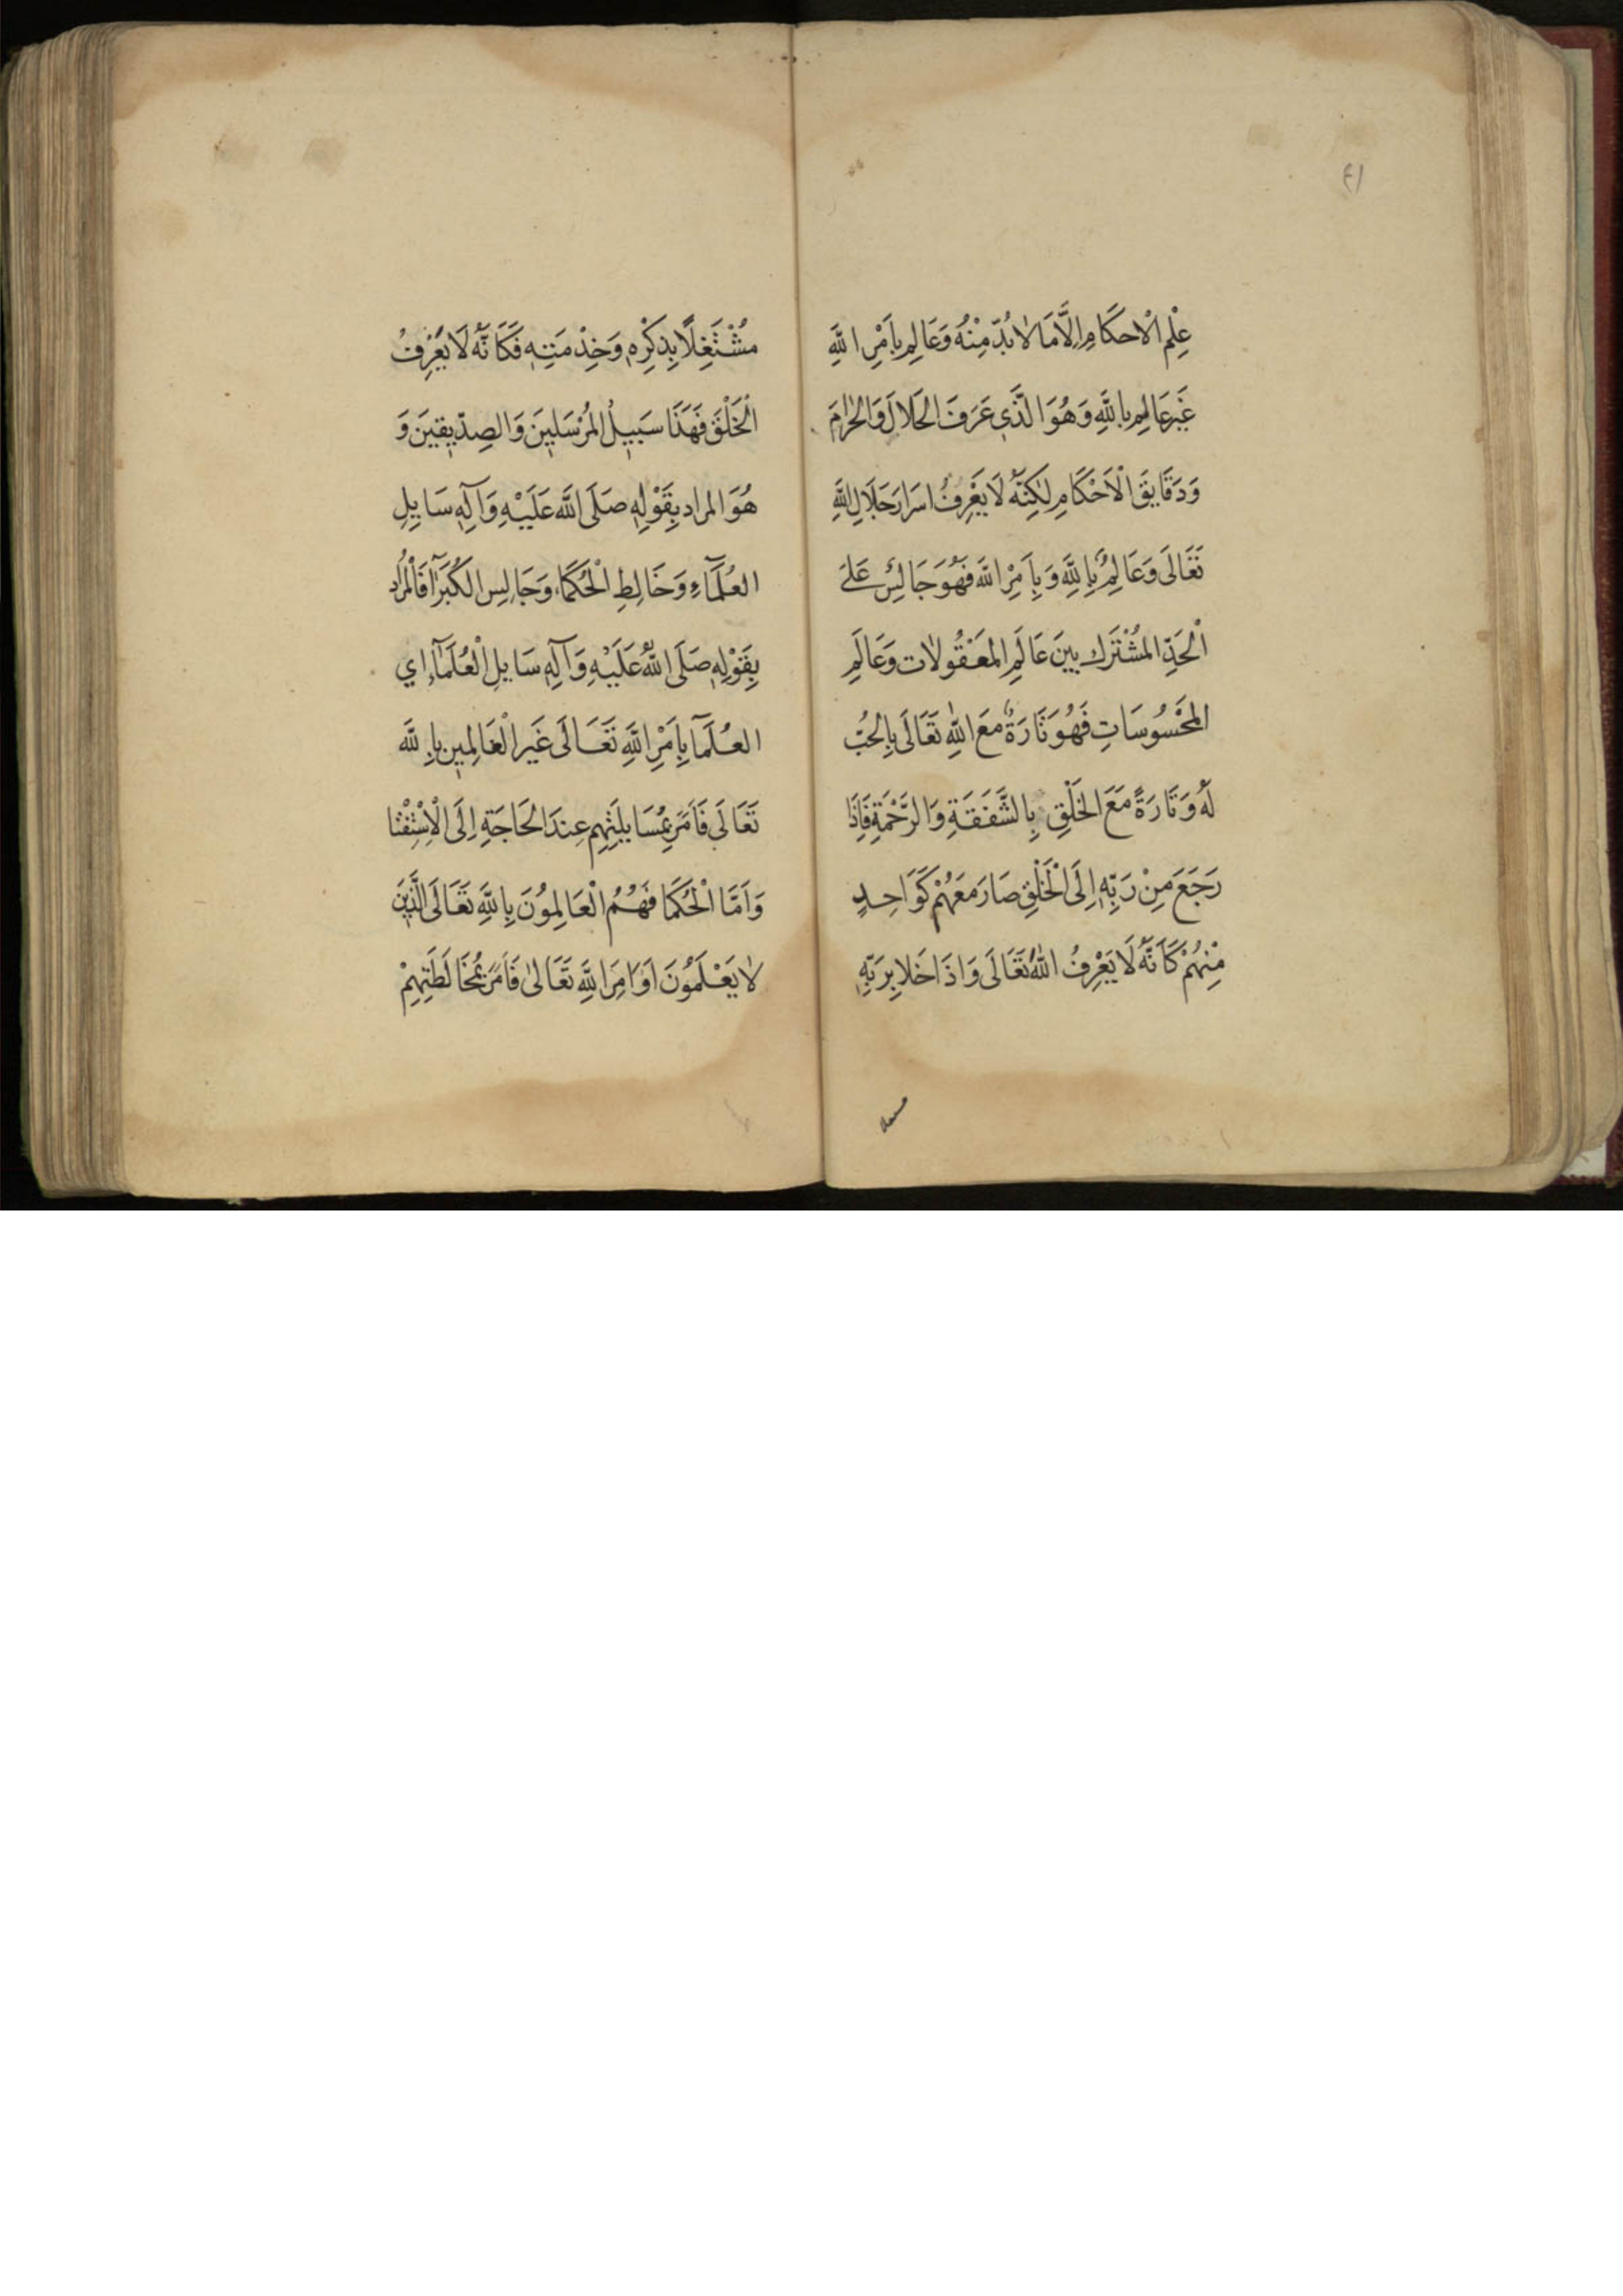 ٤١
عِلْمِ الْاحكَامِ اِلَّا مَا لَابُدَّ مِنْهُ وَعَالِمٍ بِاَمْرِ اللَّهِ
غَيرِ عَالِمٍ بِاللَّهِ وَهُوَ الَّذَي عَرَفَ الحَلالَ وَالحَرامَ
وَدَقَايِقَ الْاَحْكَامِ لٰكِنَّهُ لَا يَعْرِفُ اسَرارَ جَلَالِ اللَّهِ
تَعَالَى وَعَالِمٌ بِاللَّهِ وَبِاَمِرْ اللَّه فَهُوَ جَالِسٌ عَلىَ
اْلحَدِّ المُشْتَرَك بينَ عَالَمِ المَعقُولات وَعَالَمِ
المَحْسُوسَاتِ فَهُوَ تَارَةً معَ اللّٰهِ تَعَالَى بِالحُبِّ
لَهُ وَتَارَةً مَعَ الخَلْقِ بِالشَّفَقَةِ وَالرَّحْمَةِ فَاِذَا
رَجَعَ مِنْ رَبِّهِ اِلَى الْخَلْقِ صَارَ مَعَهُمْ كَوَاحِدٍ
مِنْهُمْ كَاَنَّهُ لَا يَعْرِفُ اللّٰهَ تَعَالَى وَاذَا خَلا بِرَبِّهِ
مشتغلا
مُشْتَغِلًا بِذِكْرِهِ وَخِدْمَتِهِ فَكَاَنَّهُ لَا يَعْرِفُ
الْخَلْقَ فَهَذَا سَبيلُ المُرْسَلينَ وَالصِدّيقينَ وَ
هُوَ المراد بِقَوْلِهِ صَلَى اللَّه عَلَيْهِ وَآلِهِ سَايِلِ
العُلَمَآءِ وَخَالِطِ الْحُكَمَاءَ وَجَالِسِ الكُبَرَآ فَالْمُرَادُ
بِقَوْلِهِ صَلَى اللّٰهُ عَلَيْهِ وَآلِهِ سَايِلِ الْعُلَمَآءِ اي
العُلَمَآ بِاَمْرِ اللَّهِ تَعَالَى غَيرِ الْعَالِمين بِاللَّه
تَعَالَى فَاَمَرَ بِمُسَايلَتِهِم عِندَ الحَاجَةِ اِلَى الْاِسْتِفْتا
وَاَمَّا الْحُكَمَا فَهُمُ الْعَالِمُونَ بِاللَّهِ تَعَالَى الَّذَينَ
لا يَعْلَمُونَ اَوَامِرَ اللَّهِ تَعَالىٰ فَاَمَرَ بِمُخَالَطَتِهِمْ